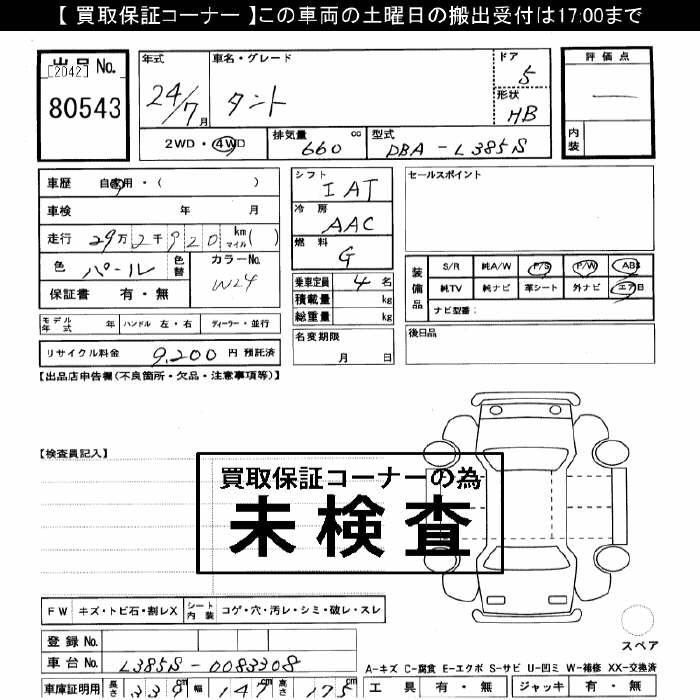 【 買取保証コーナー 】この車両の土曜日の搬出受付は17:00まで
出品 No.
[2042]
80543
年式
24/7 月
車名・グレード
タント
ドア
5
形状
HB
評価点
—
内装
2WD・4WD
排気量 660 cc
型式 DBA-L385S
車歴 自家用・( )
車検 年 月
走行 29万2千920 km マイル ( )
色 パール
色替
カラーNo.
W24
保証書 有・無
シフト
IAT
冷房
AAC
燃料
G
乗車定員 4 名
積載量 kg
総重量 kg
セールスポイント
装備品
S/R 純A/W P/S P/W ABS
純TV 純ナビ 革シート 外ナビ エアB
ナビ型番:
モデル年式 年 ハンドル 左・右 ディーラー・並行
名変期限
月 日
後日品
リサイクル料金 9,200 円 預託済
【出品店申告欄(不良箇所・欠品・注意事項等)】
【検査員記入】
買取保証コーナーの為
未検査
FW キズ・トビ石・割レX シート内装 コゲ・穴・汚レ・シミ・破レ・スレ
スペア
登録 No.
車台 No. L385S-0083308
A-キズ C-腐食 E-エクボ S-サビ U-凹ミ W-補修 XX-交換済
車庫証明用 長さ 339 cm 幅 147 cm 高さ 175 cm
工具 有・無 ジャッキ 有・無